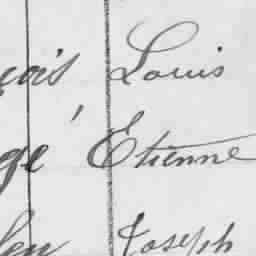 çois Louis
gé Etienne
len Joseph